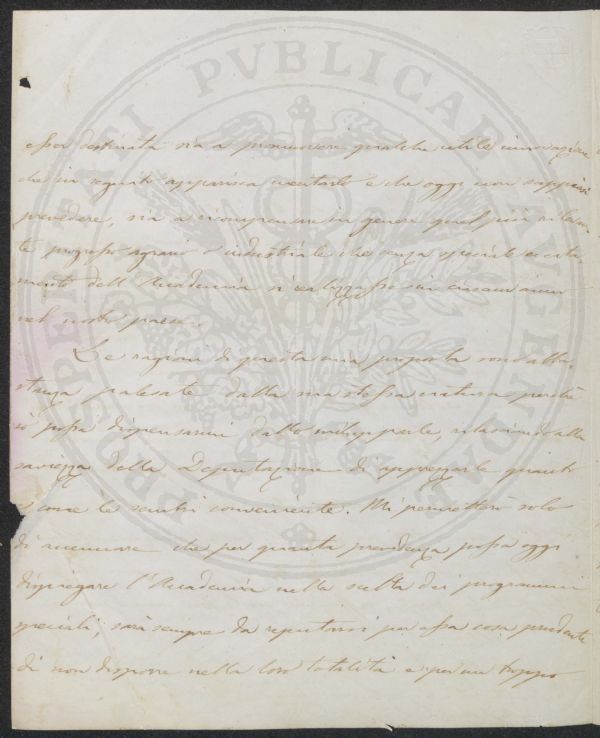 PROSPERITATI PVBLICAE AVGENDAE
esser destinata sia a promuovere qualche utile innovazione
che in seguito apparisca e che oggi non sappiasi
prevedere, sia a ricompensare in genere quel più rilevan
te progresso agrario o industriale che senza speciale eccita
mento dell'Accademia si realizzasse in ciascun anno
nel nostro paese.
Le ragioni di questa mia proposta sono abba
stanza palesate dalla sua stessa natura perché
io possa dispensarmi dallo svilupparle, rilasciando alla
saviezza della Deputazione di apprezzarle quanto
e come le sembri conveniente. Mi permetterò solo
di accennare che per quanta previdenza possa oggi
dispiegare l'Accademia nella scelta dei programmi
speciali, sarà sempre da reputarsi per essa cosa prudente
di non disporre nella loro totalità e per un troppo